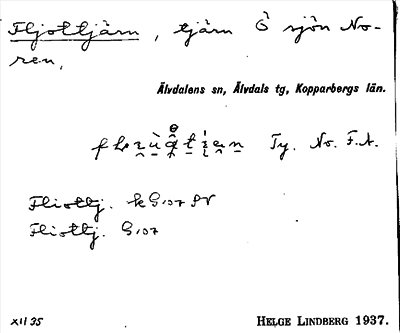 Fljottjärn, tjärn Ö sjön No-
ren.
Älvdalens sn, Älvdals tg, Kopparbergs län.
Ty. No. F.A.
Fliottj. k G:07 SV
Fliottj. G:07
XII 35
HELGE LINDBERG 1937.